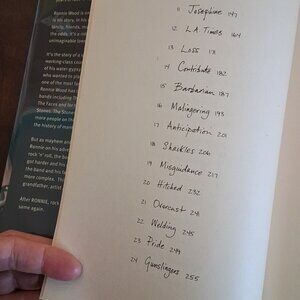 Ronnie Wood is
is his story, in his
family, friends,
the odds. It's a
unimaginable
It's the story of a
working-class
of his water gypsy
who wanted to play
one of the most
Ronnie Wood has
bands including The
The Faces and
Stones. The Stones
more people on the
the history of
But as mayhem and
Ronnie on his
rock 'n' roll, the
got harder and his
the band and his
more complex. This
grandfather, artist
After RONNIE, rock
same again.
11 Josephine 147
12 LA Times 164
13 Loss 171
14 Contribute 182
15 Barbarian 187
16 Malingering 193
17 Anticipation 201
18 Shackles 206
19 Misguidance 217
20 Hitched 232
21 Overcast 241
22 Welding 245
23 Pride 249
24 Gunslingers 255